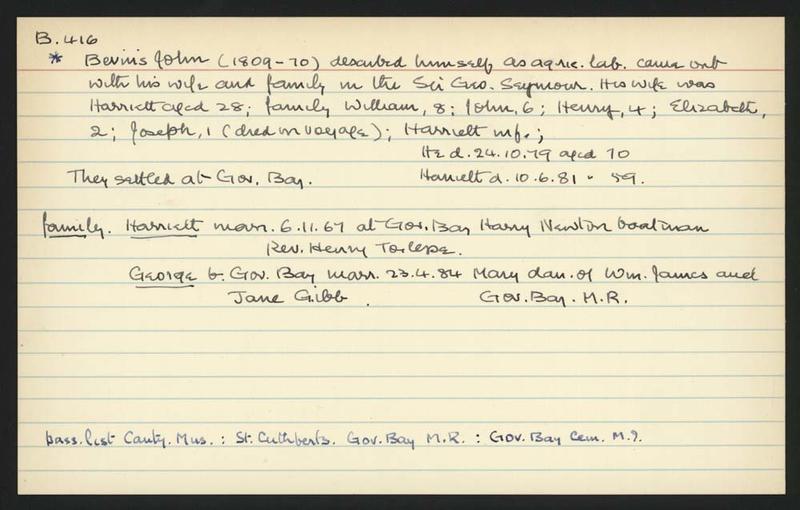 B.416
* Bevins John (1809-70) described himself as agric. lab. came out
with his wife and family in the Sir Geo. Seymour. His wife was
Harriett aged 28; family William, 8; John, 6; Henry, 4; Elizabeth,
2; Joseph, 1 (died on voyage); Harriett inf.;
He d. 24.10.79 aged 70
They settled at Gov. Bay. Harriett d. 10.6.81 " 59.
family. Harriett marr. 6.11.67 at Gov. Bay Harry Newton boatman
Rev. Henry Torlesse.
George b. Gov. Bay marr. 23.4.84 Mary dau. of Wm. James and
Jane Gibb. Gov. Bay. M.R.
pass. list Canty. Mus. : St. Cuthberts. Gov. Bay M.R. : Gov. Bay Cem. M.I.